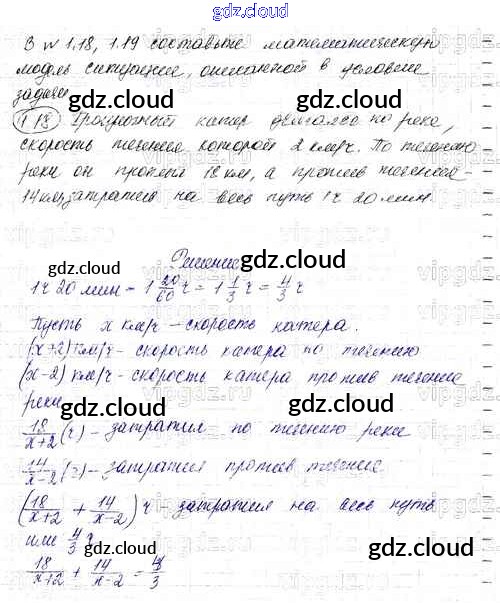 gdz.cloud
В № 1.18, 1.19 составьте математическую
модель ситуации, описанной в условии
задачи
gdz.cloud gdz.cloud
1.18 Прогулочный катер двигался по реке,
скорость течения которой 2 км/ч. По течению
gdz.cloud
реки он проплыл 18 км, а против течения -
gdz.cloud gdz.cloud
14 км, затратив на весь путь 1 ч 20 мин.
Решение
gdz.cloud
1ч 20 мин = 1 20/60 ч = 1 1/3 ч = 4/3 ч
gdz.cloud
Пусть x км/ч - скорость катера.
(x+2) км/ч - скорость катера по течению
(x-2) км/ч - скорость катера против течения
gdz.cloud
реки
gdz.cloud
18/(x+2) (ч) - затратил по течению реки
14/(x-2) (ч) - затратил против течения
gdz.cloud
(18/(x+2) + 14/(x-2)) ч - затратил на весь путь
gdz.cloud
или 4/3 ч
gdz.cloud
18/(x+2) + 14/(x-2) = 4/3